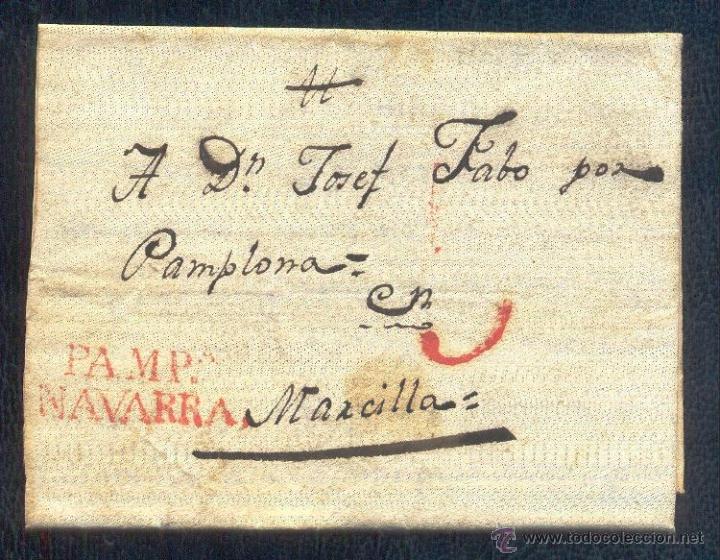 A Dⁿ. Josef Fabo por
Pamplona=
en
PAMP.ᴬ
NAVARRA.
Marcilla=
© www.todocoleccion.net